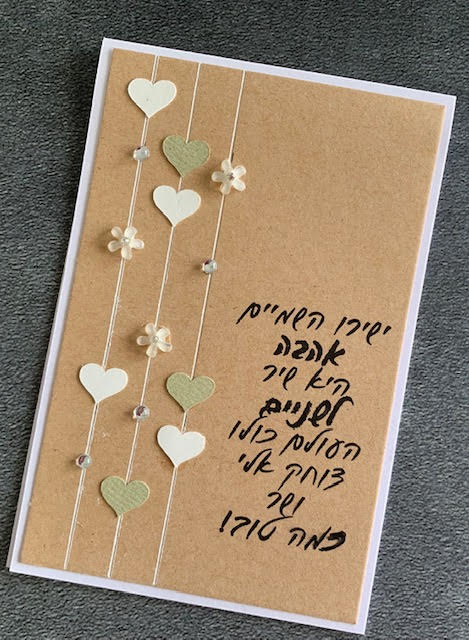 ישירו השמיים
אהבה
היא שיר
לשניים
העולם כולו
צוחק אלי
ושר
כמה טוב!